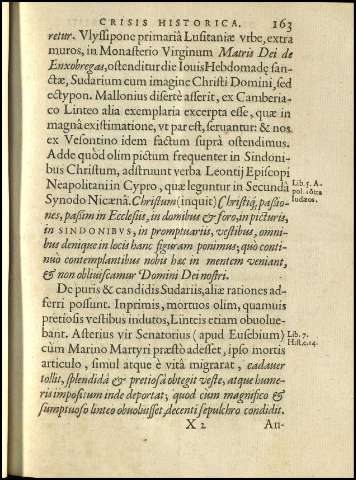 CRISIS HISTORICA. 163
retur. Vlyssipone primariâ Lusitaniæ vrbe, extra
muros, in Monasterio Virginum Matris Dei de
Enxobregas, ostenditur die Iouis Hebdomadę san-
ctæ, Sudarium cum imagine Christi Domini, sed
ectypon. Mallonius disertè asserit, ex Camberia-
co Linteo alia exemplaria excerpta esse, quæ in
magnâ existimatione, vt par est, seruantur: & nos
ex Vesontino idem factum suprà ostendimus.
Adde quòd olim pictum frequenter in Sindoni-
bus Christum, adstruunt verba Leontij Episcopi
Neapolitani in Cypro, quæ leguntur in Secundâ
Synodo Nicænâ. Christum (inquit) Christiq́; passio-
nes, passim in Ecclesiis, in domibus & foro, in picturis,
in SINDONIBVS, in promptuariis, vestibus, omni-
bus denique in locis hanc figuram ponimus; quò conti-
nuò contemplantibus nobis hæc in mentem veniant,
& non obliuiscamur Domini Dei nostri.
Lib. 5. A-
pol. cõtra
Iudæos.
De puris & candidis Sudariis, aliæ rationes ad-
ferri possunt. Inprimis, mortuos olim, quamuis
pretiosis vestibus indutos, Linteis etiam obuolue-
bant. Asterius vir Senatorius (apud Eusebium)
cùm Marino Martyri præstò adesset, ipso mortis
articulo, simul atque è vitâ migrarat, cadauer
tollit, splendidâ & pretiosâ obtegit veste, atque hume-
ris impositum inde deportat; quod cùm magnifico &
sumptuoso linteo obuoluisset, decenti sepulchro condidit.
Lib. 7.
Hist. c. 14.
X 2 Au-